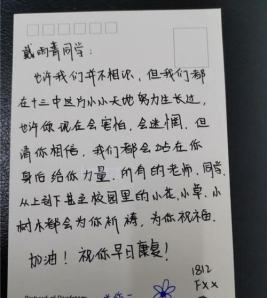 戴雨青同学:
也许我们并不相识,但我们都
在十三中这片小小天地努力生长过,
也许你现在会害怕,会迷惘,但
请你相信,我们都会站在你
身后给你力量,所有的老师、同学,
从上到下甚至校园里的小花、小草、小
树木都会为你祈祷,为你祝福.
加油!祝你早日康复!
1812
Fxx